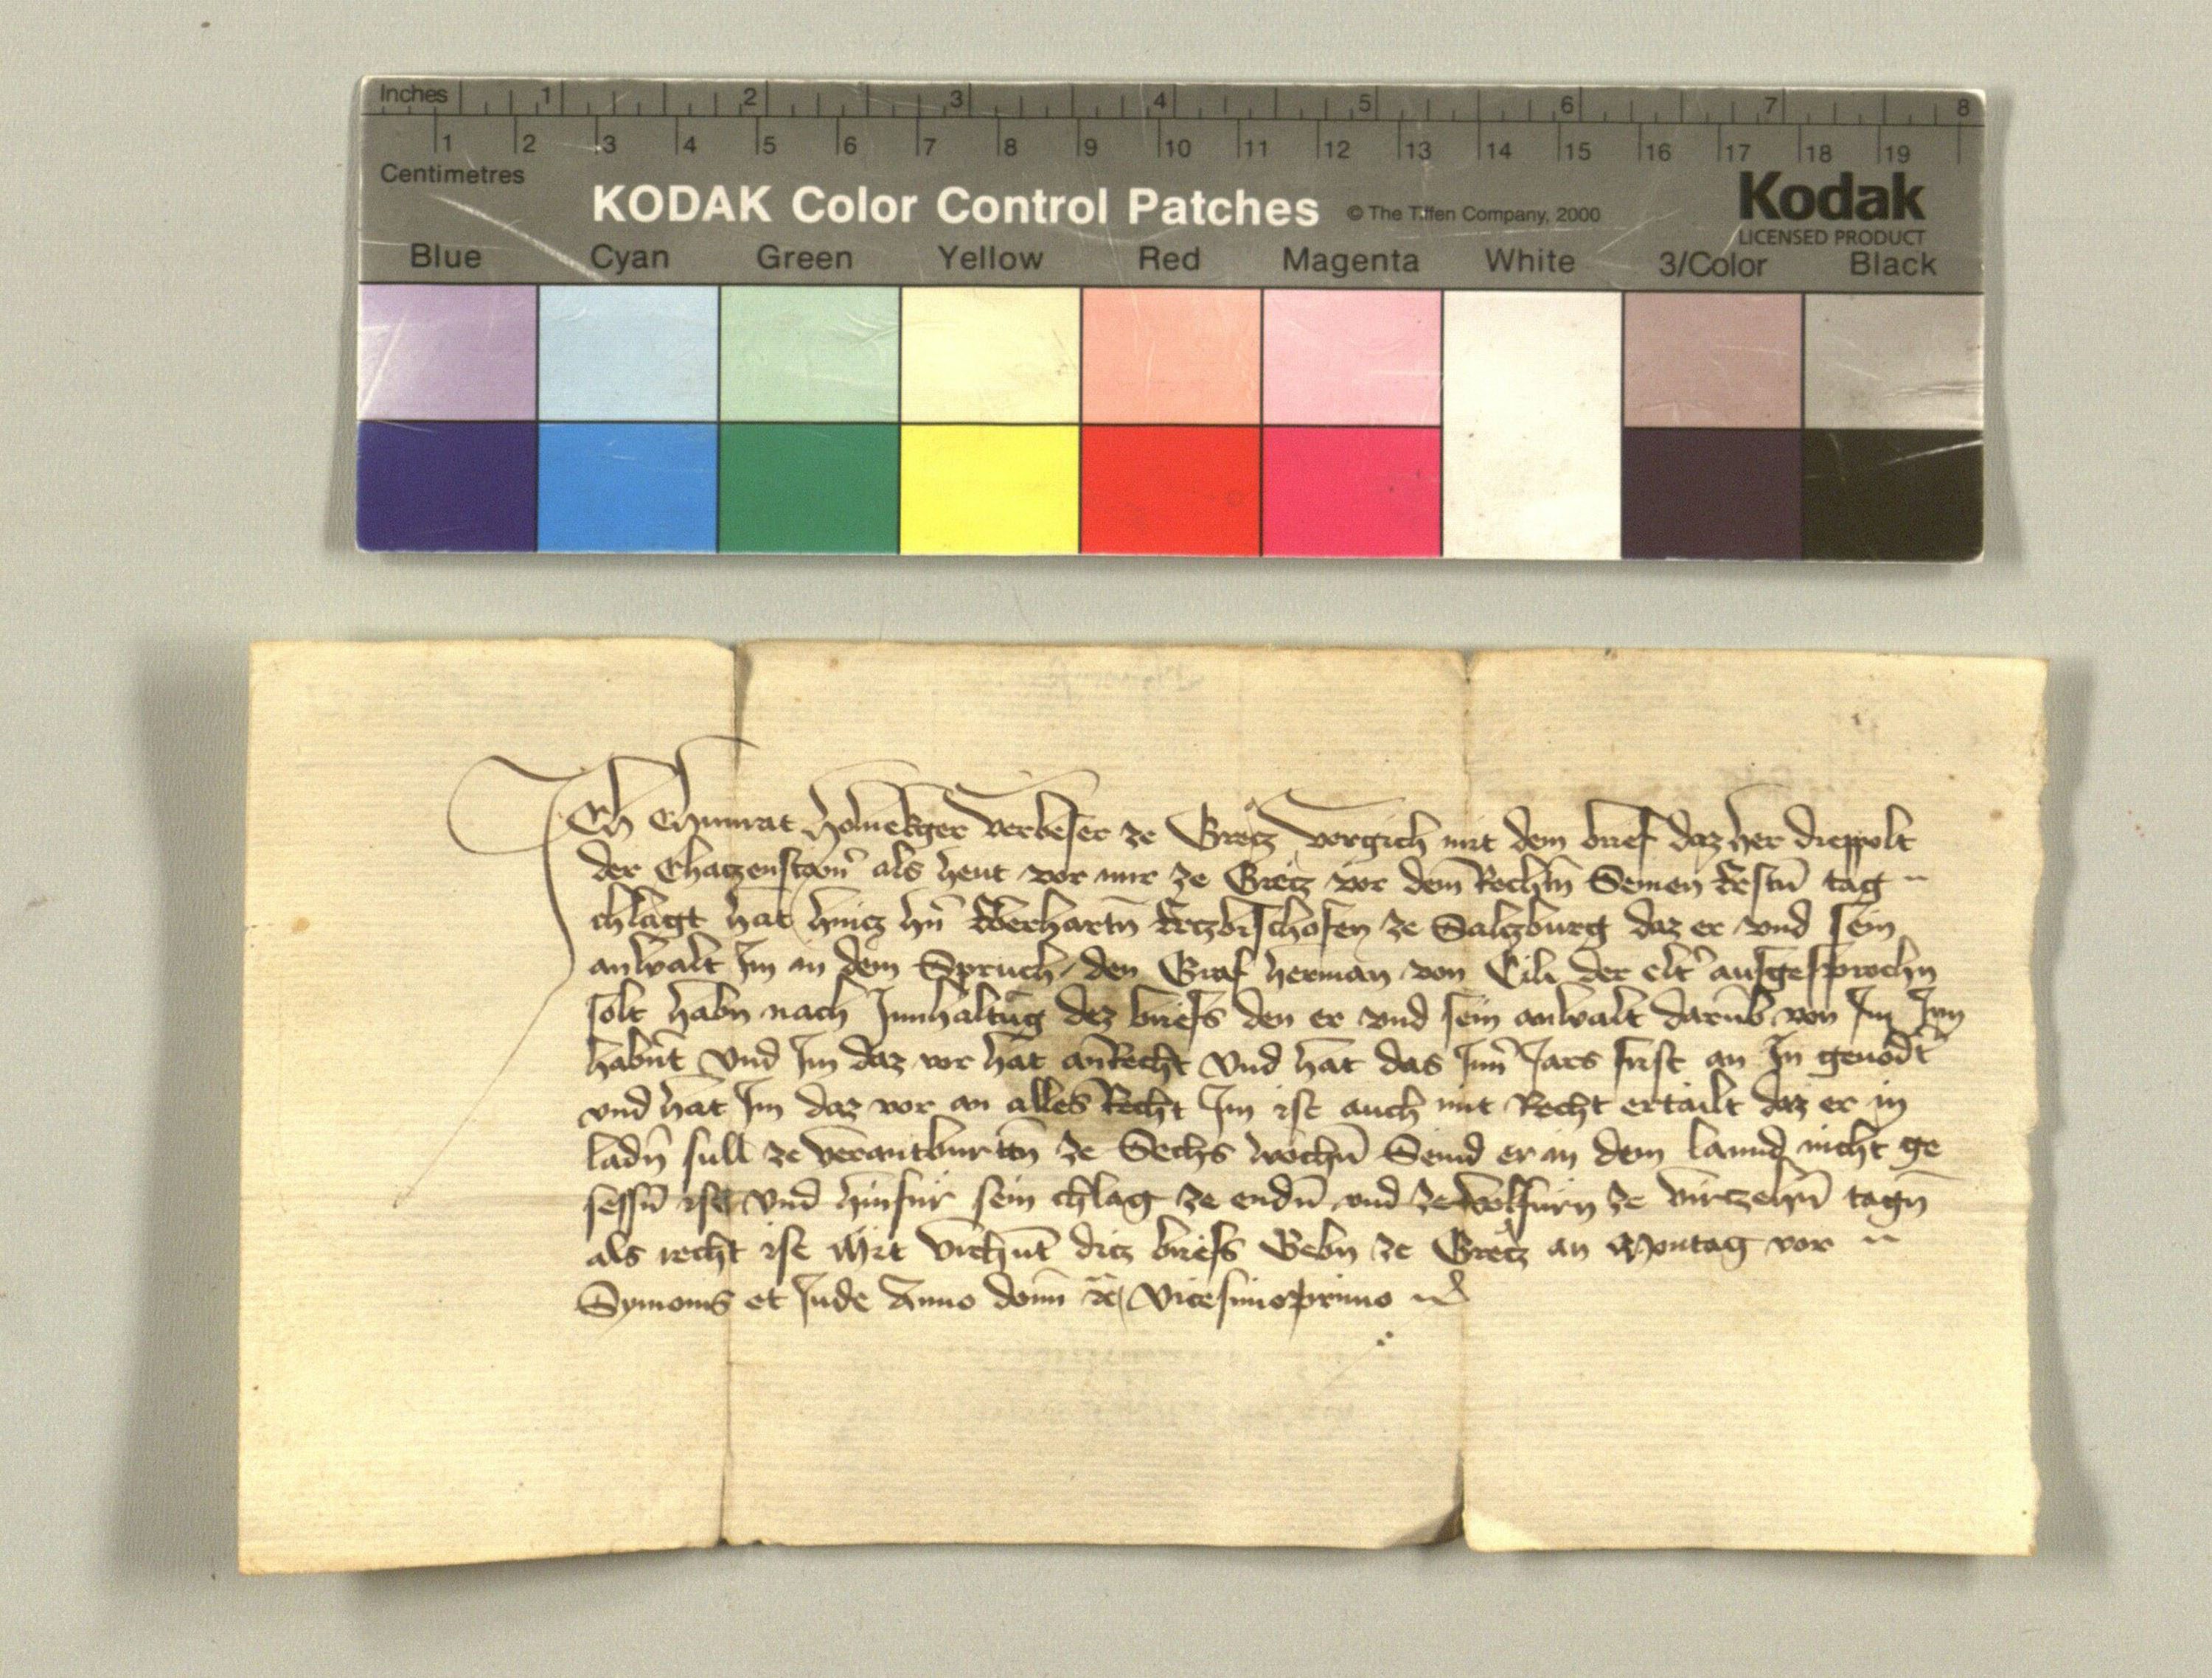 Inches 1 2 3 4 5 6 7 8
1 2 3 4 5 6 7 8 9 10 11 12 13 14 15 16 17 18 19
Centimetres
KODAK Color Control Patches © The Tiffen Company, 2000 Kodak
LICENSED PRODUCT
Blue Cyan Green Yellow Red Magenta White 3/Color Black
Ich Chunrat verbeser ze Gretz vergich mit dem brief daz her dieppolt
der als heut vor mir ze Gretz vor dem Rechtn Seinen Erstn̄ tag
chlagt hat hincz hn̄ Eberhartn̄ Ertzbischofen ze Salczburg daz er vnd sein
anbalt Im in dem Spruch den Graf herman von Cili der elt' ausgesprochn
solt habn nach Innhaltūg dez briefs den er vnd sein anbalt darūb von Im Inn
habn̄t Vnd Im daz vor hat an Recht Vnd hat das Inn̄ Jars frist an In genodt
vnd hat Im daz vor an alles Recht Im ist auch mit Recht ertailt daz er in
ladn̄ sull ze verantburttn ze Sechs wochn̄ Seind er in dem lannd nicht ge
sessn̄ ist Vnd hinfür sein chlag ze endn̄ vnd ze volfürn ze virczehn̄ tagn̄
als recht ist Mit Vrchūt dicz briefs Gebn ze Gretz an Montag vor
Symonis et Jude Anno domī ꝛc Vicesimoprimo